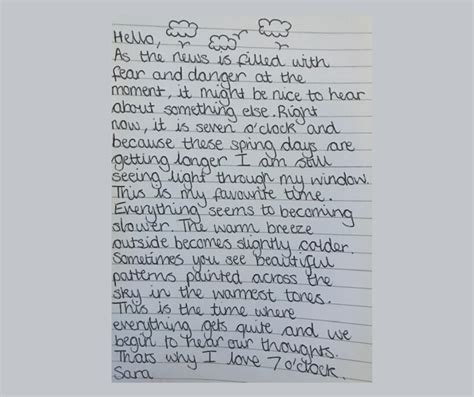 Hello,
As the news is filled with
fear and danger at the
moment, it might be nice to hear
about something else. Right
now, it is seven o'clock and
because these spring days are
getting longer I am still
seeing light through my window.
This is my favourite time.
Everything seems to becoming
slower. The warm breeze
outside becomes slightly colder.
Sometimes you see beautiful
patterns painted across the
sky in the warmest tones.
This is the time where
everything gets quite and we
begin to hear our thoughts.
Thats why I love 7 o'clock.
Sara